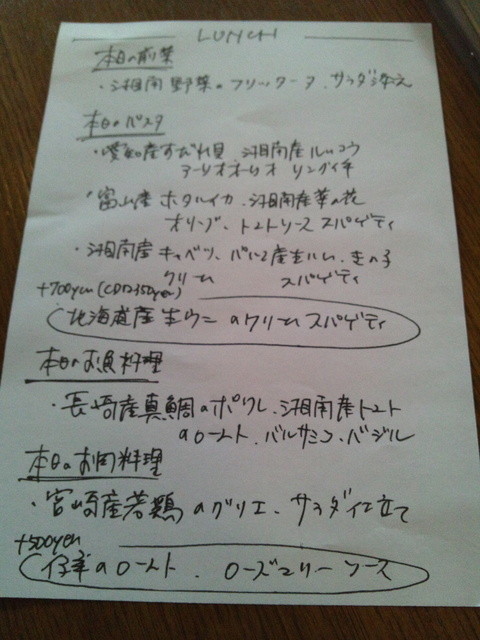 LUNCH
本日の前菜
・湘南野菜のフリッタータ、サラダ添え
本日のパスタ
・愛知産すだれ貝 湘南産ルッコラ
アーリオオーリオ リングイネ
・富山産ホタルイカ、湘南産菜の花
オリーブ、トマトソース スパゲティ
・湘南産キャベツ、パルマ産生ハム、きの子
クリーム スパゲティ
+700yen
北海道産生ウニのクリームスパゲティ
本日のお魚料理
・長崎産真鯛のポワレ、湘南産トマト
のロースト、バルサミコ、バジル
本日のお肉料理
・宮崎産若鶏のグリエ、サラダ仕立て
+500yen
仔羊のロースト、ローズマリーソース